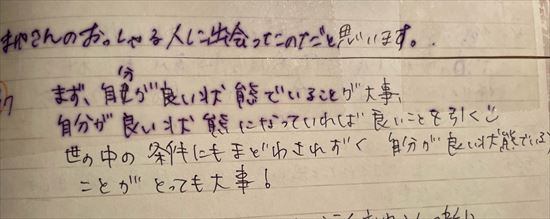 まやさんのおっしゃる人に出会ってこのだと思います。
まず、自分が良い状態でいることが大事、
自分が良い状態になっていれば良いことを引く
世の中の条件にもまどわされず 自分が良い状態でいる
ことがとっても大事!